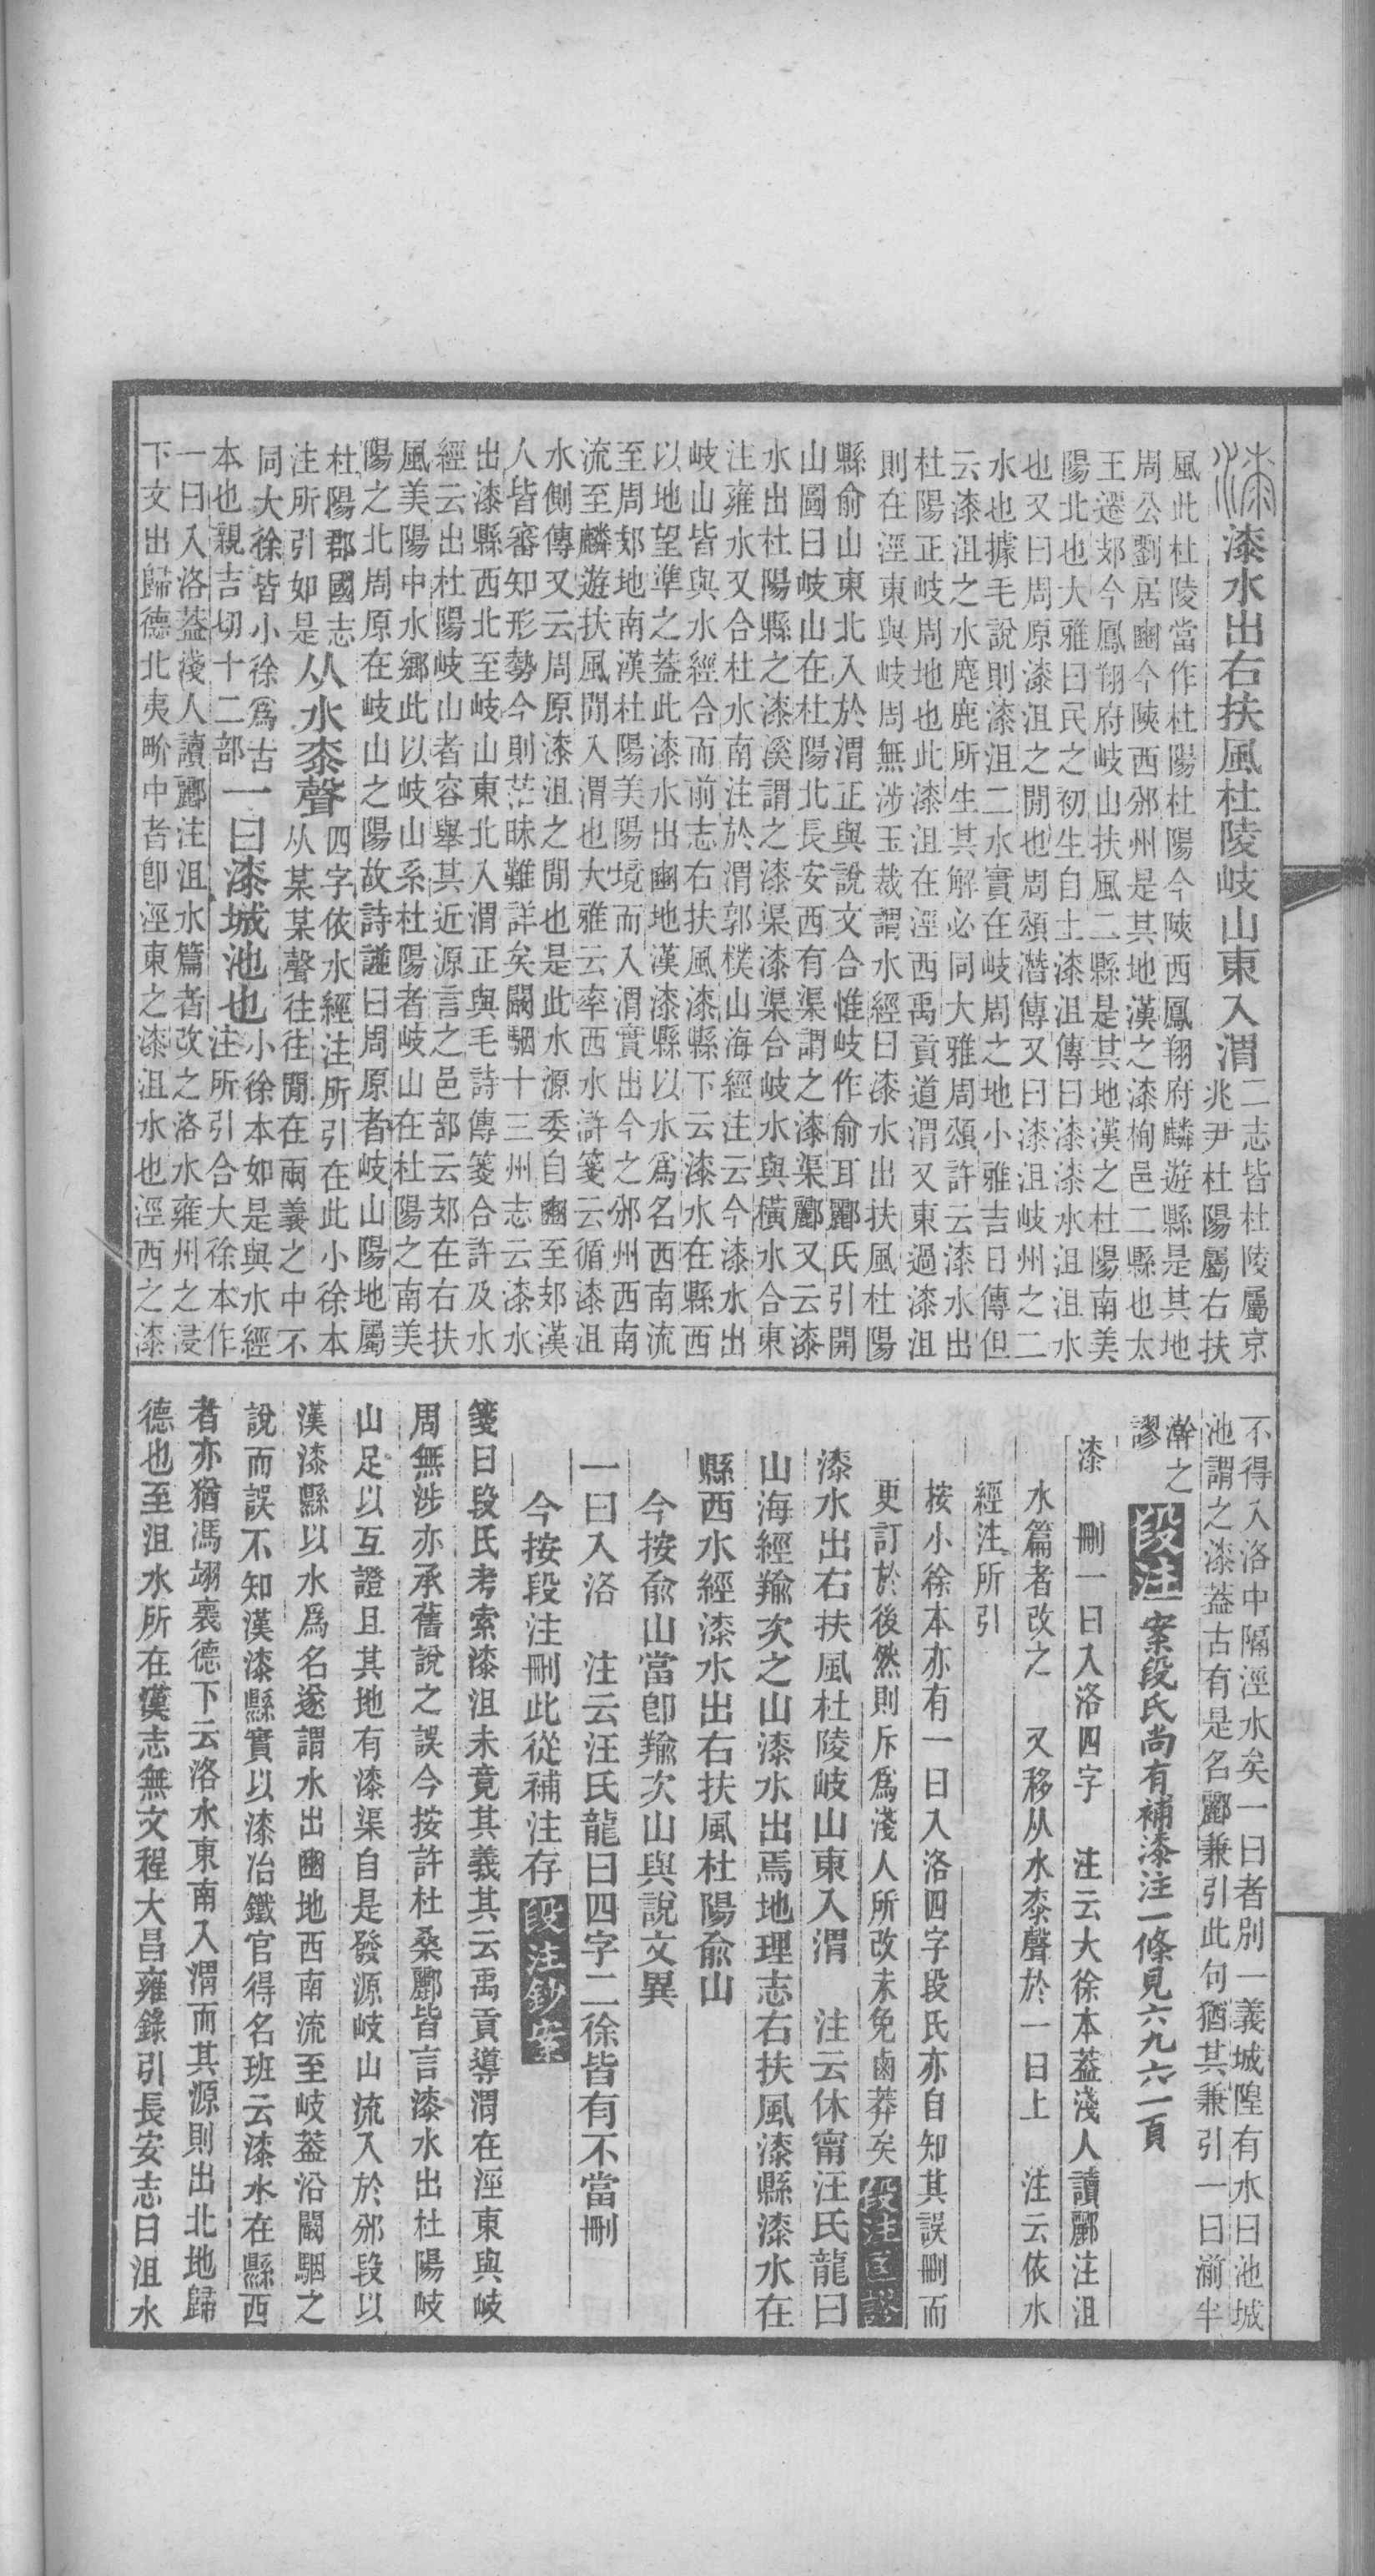 漆水出右扶風杜陵岐山東入渭二志皆杜陵屬京
兆尹杜陽屬右扶
風此杜陵當作杜陽杜陽今陝西鳳翔府麟遊縣是其地
周公劉居豳今陝西邠州是其地漢之漆栒邑二縣也太
王遷郊今鳳翔府岐山扶風二縣是其地漢之杜陽南美
陽北也大雅曰民之初生自土漆沮傳曰漆漆水沮沮水
也又曰周原漆沮之閒也周頌潛傳又曰漆沮岐州之二
水也據毛說則漆沮二水實在岐周之地小雅吉日傳但
云漆沮之水麀鹿所生其解必同大雅周頌許云漆水出
杜陽正岐周地也此漆沮在涇西禹貢道渭又東過漆沮
則在涇東與岐周無涉玉裁謂水經曰漆水出扶風杜陽
縣俞山東北入於渭正與說文合惟岐作俞耳酈氏引開
山圖曰岐山在杜陽北長安西有渠謂之漆渠酈又云漆
水出杜陽縣之漆溪謂之漆渠漆渠合岐水與橫水合東
注雍水又合杜水南注於渭郭樸山海經注云今漆水出
岐山皆與水經合而前志右扶風漆縣下云漆水在縣西
以地望準之蓋此漆水出豳地漢漆縣以水爲名西南流
至周郊地南漢杜陽美陽境而入渭實出今之邠州西南
流至麟遊扶風閒入渭也大雅云率西水滸箋云循漆沮
水側傳又云周原漆沮之閒也是此水源委自豳至郊漢
人皆審知形勢今則茫昧難詳矣闞駰十三州志云漆水
出漆縣西北至岐山東北入渭正與毛詩傳箋合許及水
經云出杜陽岐山者容舉其近源言之邑部云郊在右扶
風美陽中水鄉此以岐山系杜陽者岐山在杜陽之南美
陽之北周原在岐山之陽故詩譜曰周原者岐山陽地屬
杜陽郡國志
注所引如是从水桼聲四字依水經注所引在此小徐本
从某某聲往往閒在兩義之中不
同大徐皆小徐爲古
本也親吉切十二部一曰漆城池也小徐本如是與水經
注所引合大徐本作
一曰入洛蓋淺人讀酈注沮水篇者改之洛水雍州之浸
下文出歸德北夷畍中者卽涇東之漆沮水也涇西之漆
不得入洛中隔涇水矣一曰者別一義城隍有水曰池城
池謂之漆蓋古有是名酈兼引此句猶其兼引一曰湔半
㶕之
謬段注 案段氏尚有補漆注一條見六九六一頁
漆 刪一曰入洛四字 注云大徐本蓋淺人讀酈注沮
水篇者改之 又移从水桼聲於一曰上 注云依水
經注所引
按小徐本亦有一曰入洛四字段氏亦自知其誤刪而
更訂於後然則斥爲淺人所改未免鹵莽矣段注匡謬
漆水出右扶風杜陵岐山東入渭 注云休甯汪氏龍曰
山海經羭次之山漆水出焉地理志右扶風漆縣漆水在
縣西水經漆水出右扶風杜陽俞山
今按俞山當卽羭次山與說文異
一曰入洛 注云汪氏龍曰四字二徐皆有不當刪
今按段注刪此從補注存段注鈔案
箋曰段氏考索漆沮未竟其義其云禹貢導渭在涇東與岐
周無涉亦承舊說之誤今按許杜桑酈皆言漆水出杜陽岐
山足以互證且其地有漆渠自是發源岐山流入於邠段以
漢漆縣以水爲名遂謂水出豳地西南流至岐蓋沿闞駰之
說而誤不知漢漆縣實以漆冶鐵官得名班云漆水在縣西
者亦猶馮翊褱德下云洛水東南入渭而其源則出北地歸
德也至沮水所在漢志無文程大昌雍錄引長安志曰沮水